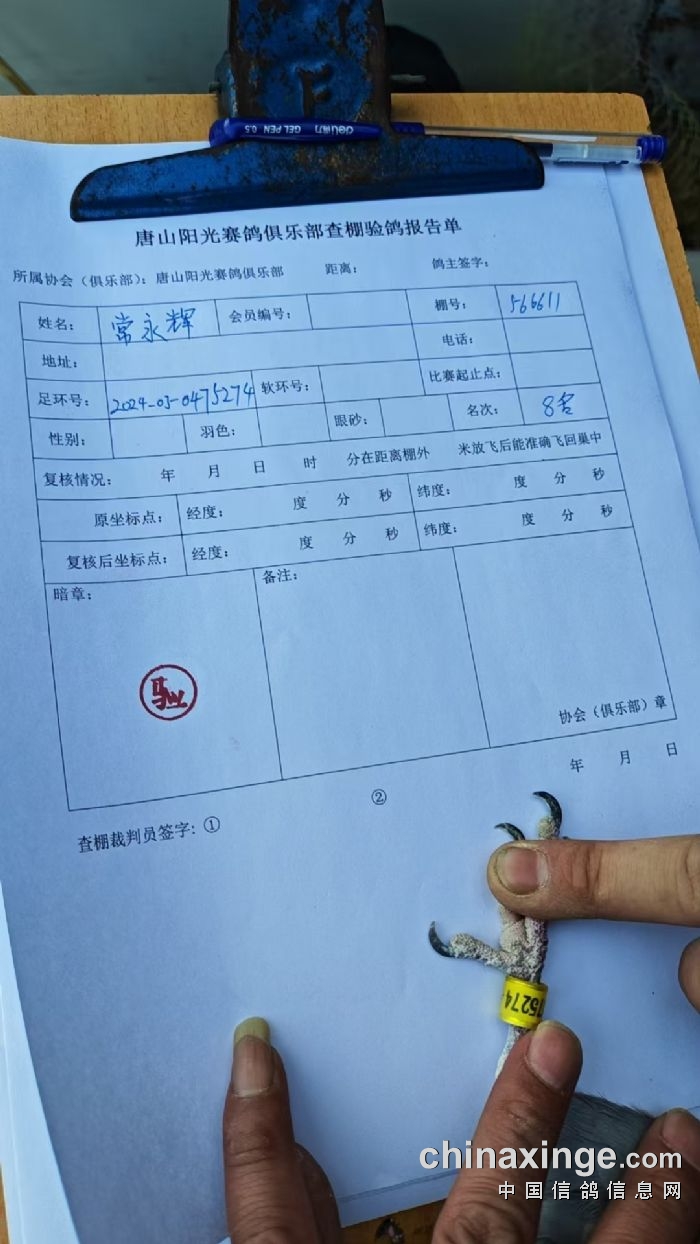 deli得力 GEL PEN 0.5
唐山阳光赛鸽俱乐部查棚验鸽报告单
所属协会（俱乐部）：唐山阳光赛鸽俱乐部 距离： 鸽主签字：
姓名： 常永辉 会员编号： 棚号： 566611
地址： 电话：
足环号： 2024-03-0475274 软环号： 比赛起止点：
性别： 羽色： 眼砂： 名次： 8名
复核情况： 年 月 日 时 分在距离棚外 米放飞后能准确飞回巢中
原坐标点： 经度： 度 分 秒 纬度： 度 分 秒
复核后坐标点： 经度： 度 分 秒 纬度： 度 分 秒
暗章： 备注：
驰
协会（俱乐部）章
年 月 日
查棚裁判员签字：① ②
75274
chinaxinge.com
中国信鸽信息网